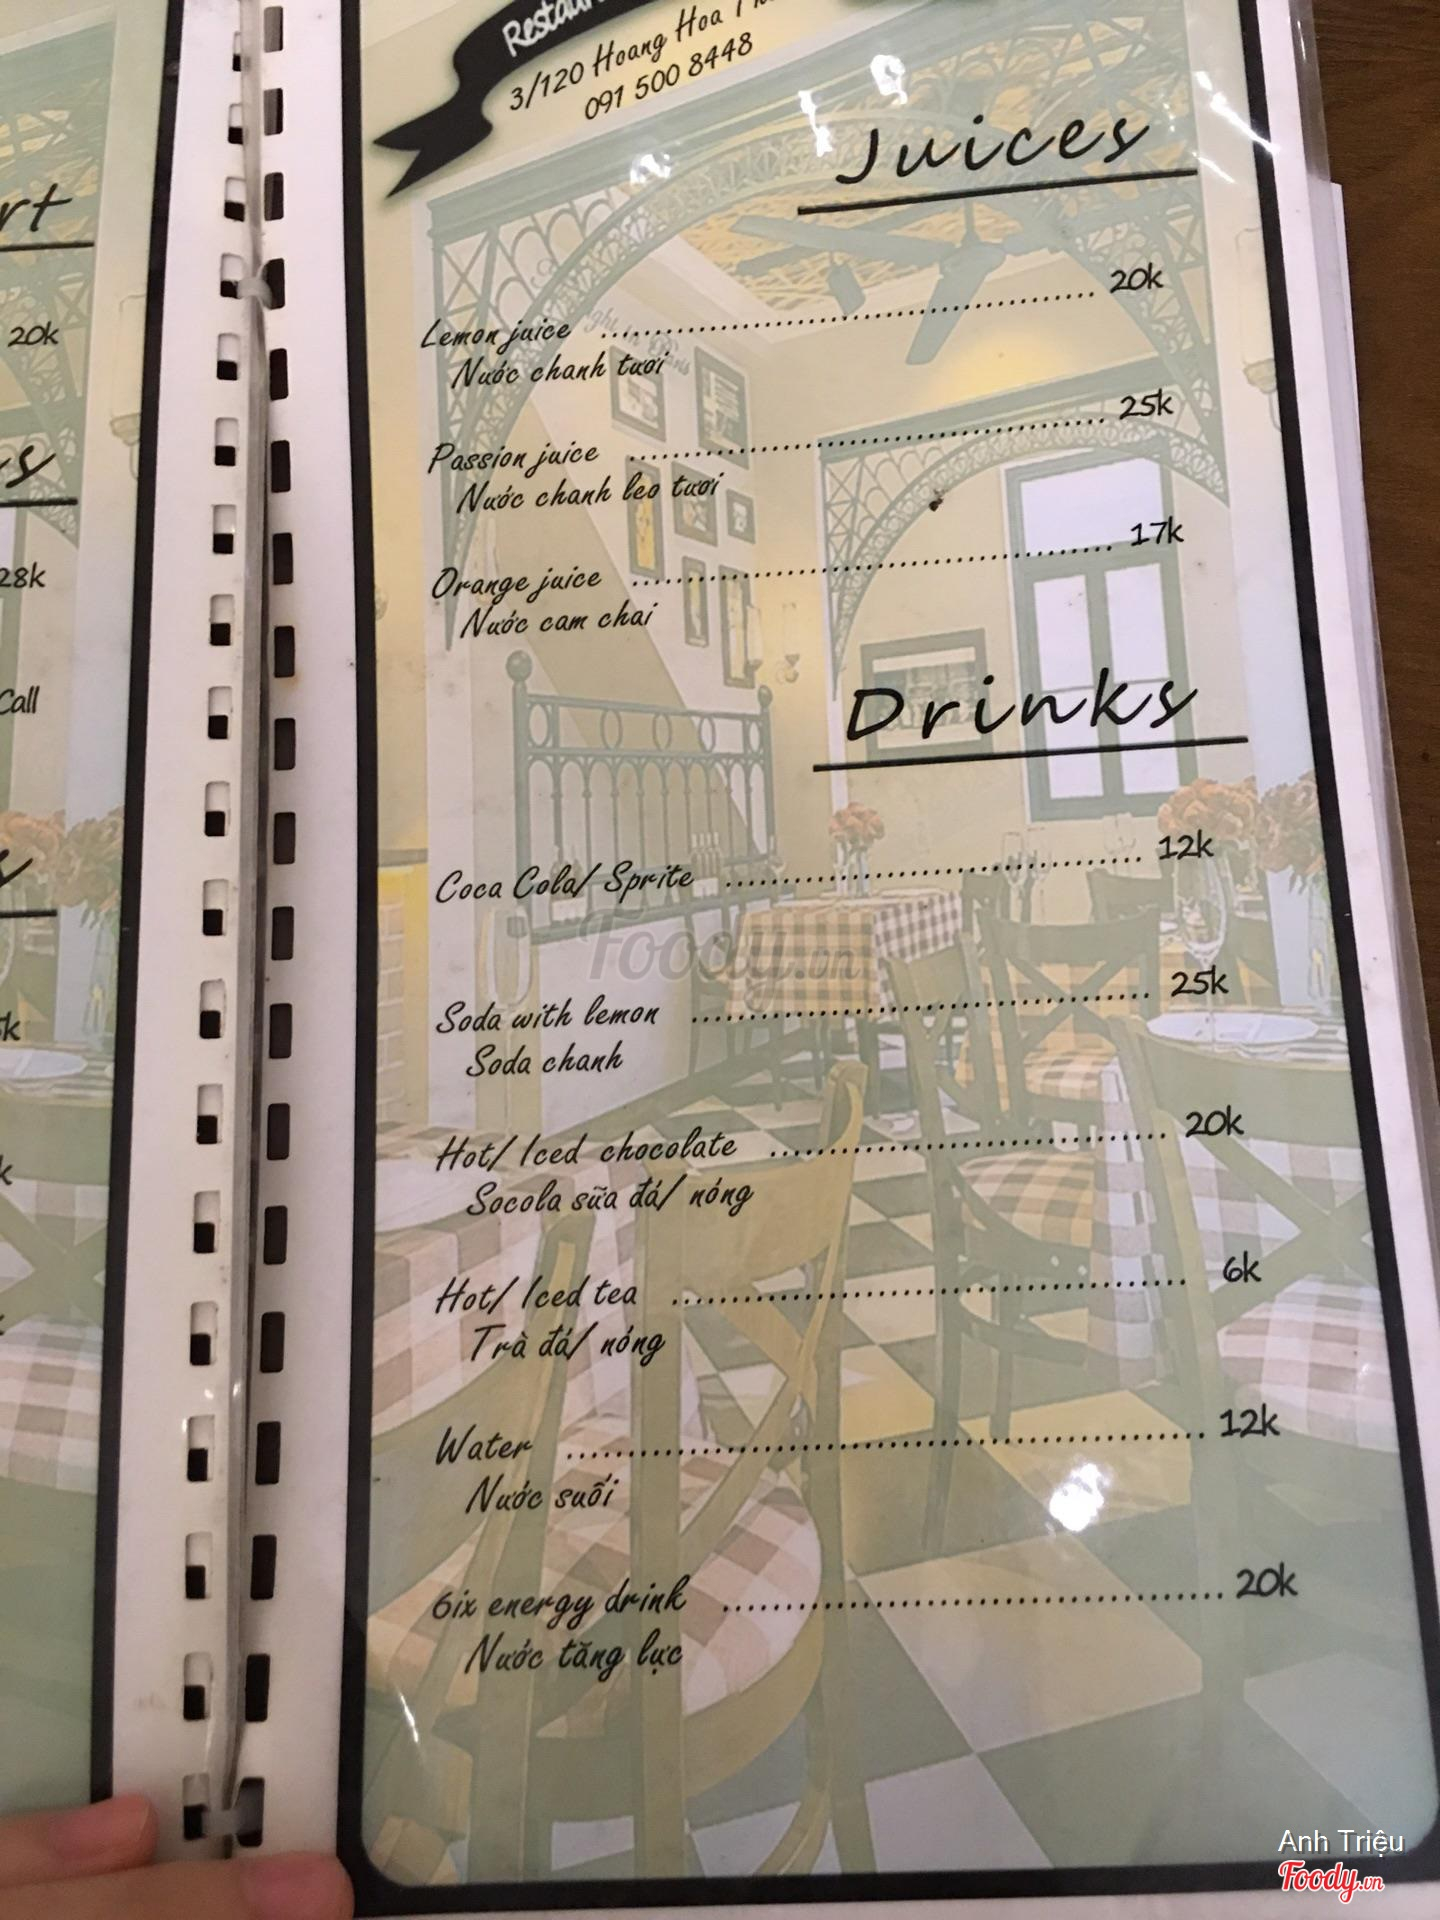 3/120 Hoang Hoa
091 500 8448
Juices
Lemon juice ........ 20k
Nước chanh tươi
Passion juice ........ 25k
Nước chanh leo tươi
Orange juice ........ 17k
Nước cam chai
Drinks
Coca Cola/ Sprite ........ 12k
Soda with lemon ........ 25k
Soda chanh
Hot/ Iced chocolate ........ 20k
Socola sữa đá/ nóng
Hot/ Iced tea ........ 6k
Trà đá/ nóng
Water ........ 12k
Nước suối
6ix energy drink ........ 20k
Nước tăng lực
20k
28k
Call
Foody.vn
Anh Triệu
Foody.vn